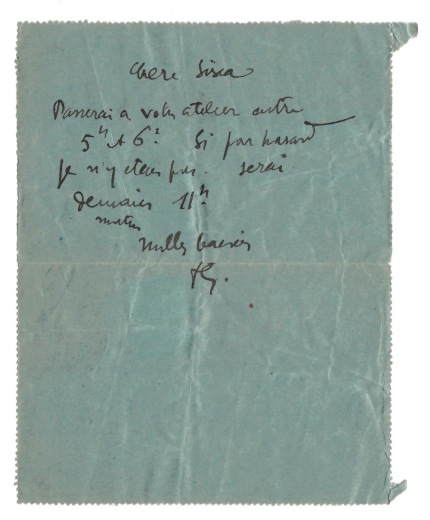 Chere Sisca
Passerai a votre atelier entre
5h et 6h. Si par hasard
je n'y etais pas. serai
demain 11h.
matin
mille baisers